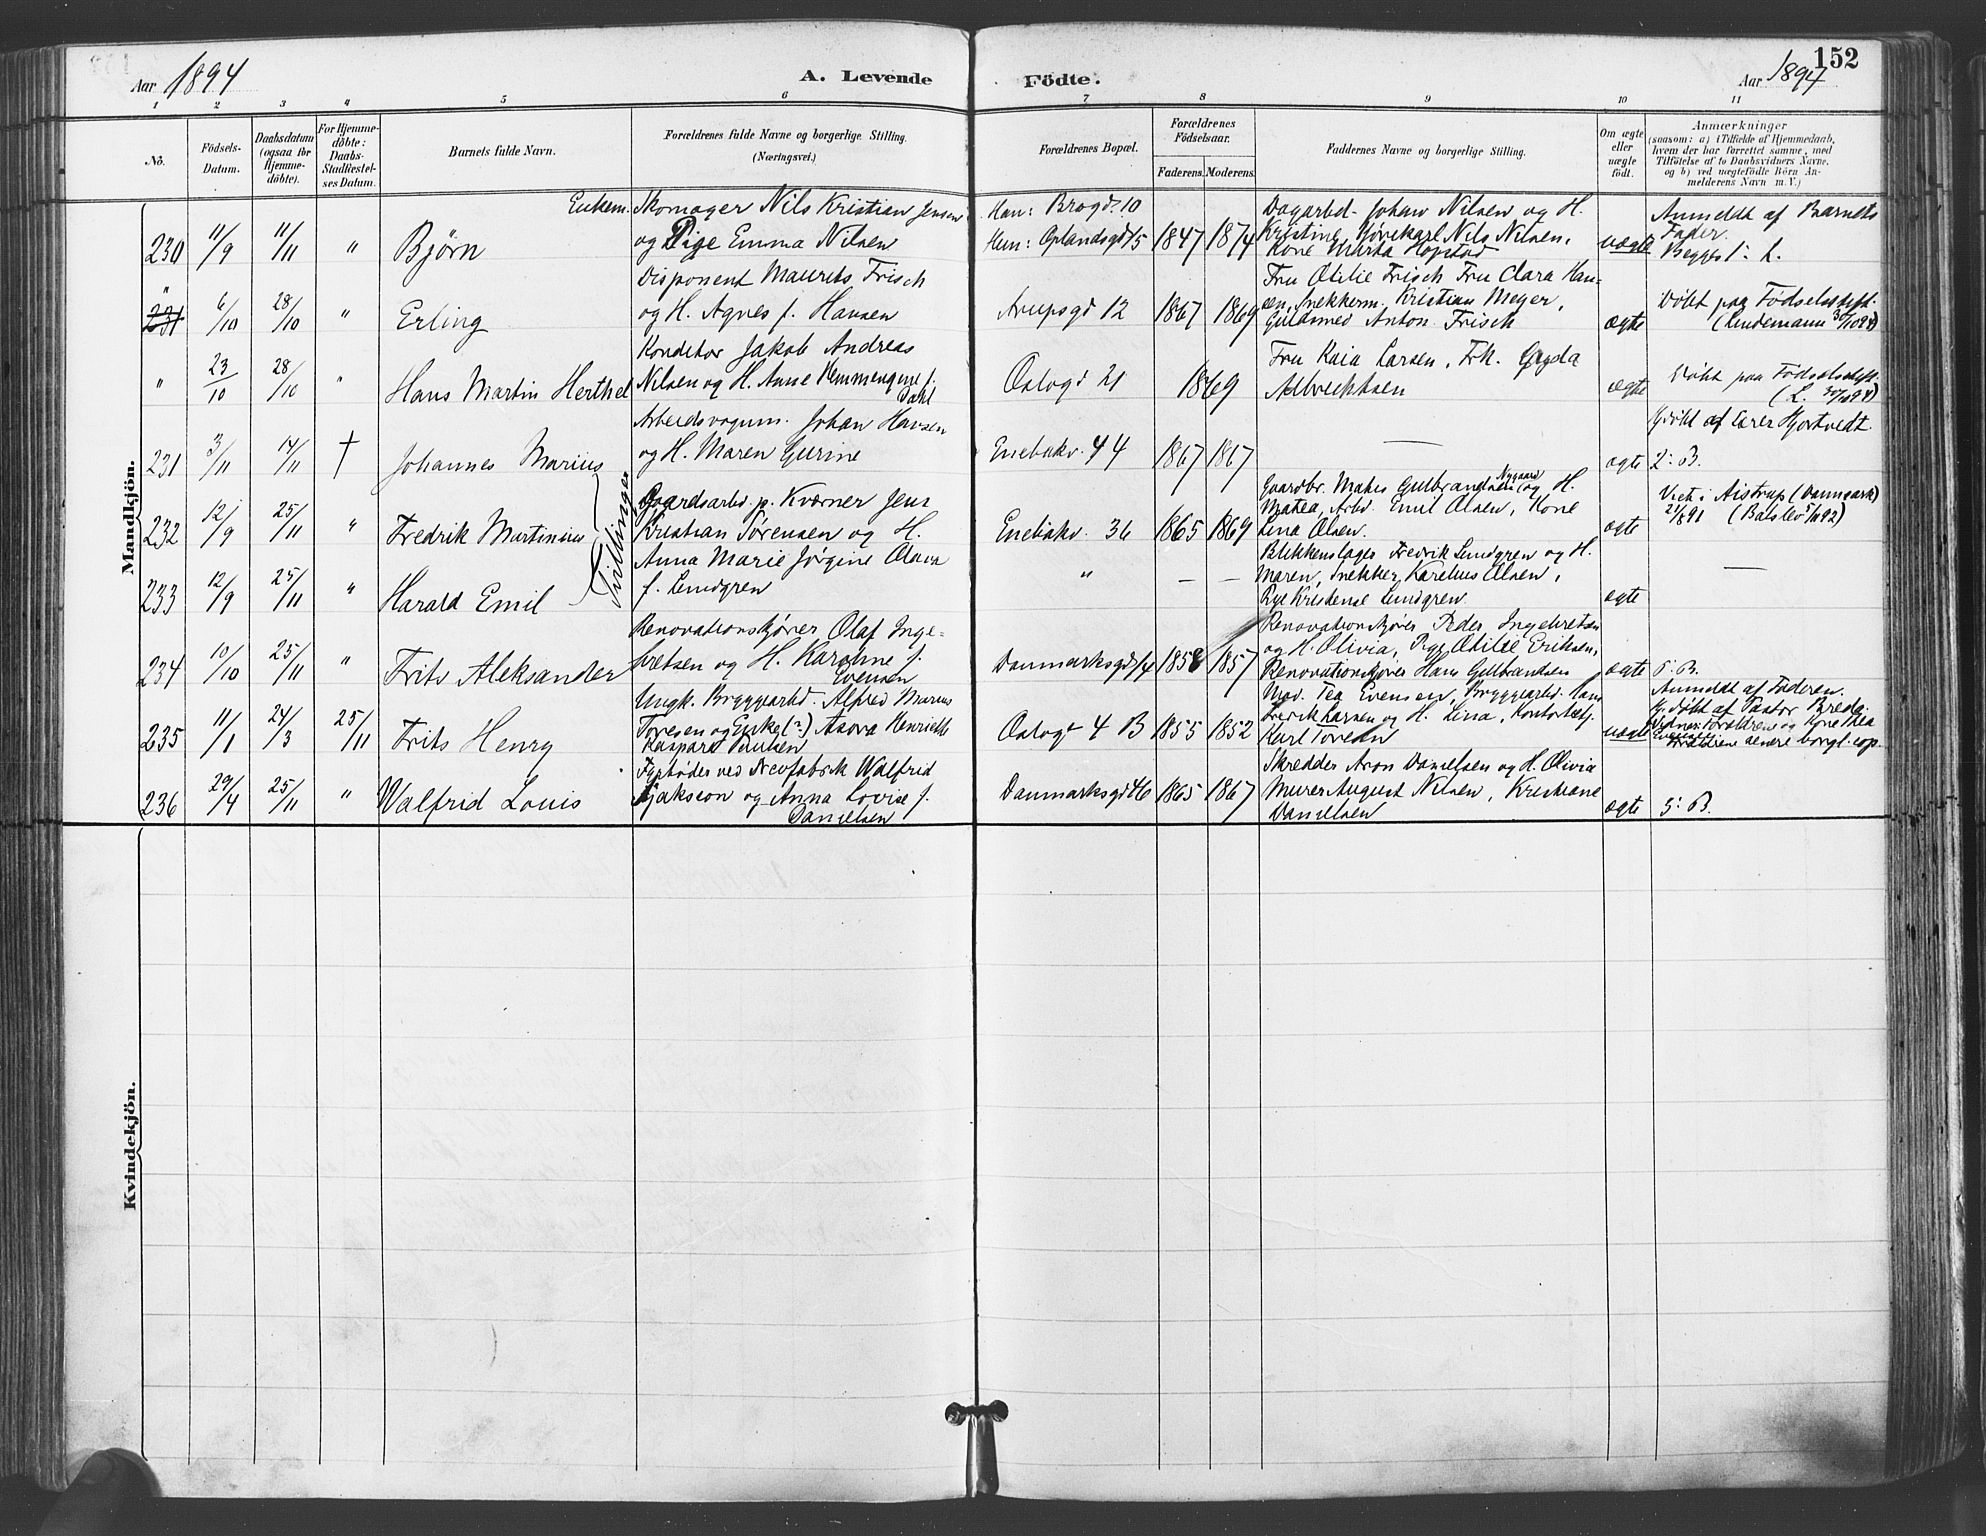 152
Aar 1894
A. Levende Födte.
Aar 1894
1 2 3 4 5 6 7 8 9 10 11
No.
Födsels-Datum.
Daabsdatum (ogsaa for Hjemme-döbte).
For Hjemme-döbte: Daabs-Stadfæstel-ses Datum.
Barnets fulde Navn.
Forældrenes fulde Navne og borgerlige Stilling.
(Næringsvei.)
Forældrenes Bopæl.
Forældrenes Födselsaar.
Faderens. Moderens.
Faddernes Navne og borgerlige Stilling.
Om ægte eller uægte födt.
Anmærkninger
(saasom: a) i Tilfælde af Hjemmedaab,
hvem der har forrettet samme, med
Tilföielse af to Daabsvidners Navne.
og b) ved uægtefödte Börn An-
melderens Navn m. V.)
Mandkjön.
Enkem. Skomager Nils Kristian Jensen
og Pige Emma Nilsen
230 11/9 11/11 " Bjørn
Han: Brogd. 10
Hun: Oplandsgd 15 1847 1874
Dagarbd. Johan Nilsen og H.
Kristine, Nils Nilsen,
Kone Marta Hopstad
uægte
Anmeldt af Barnets
Fader.
Begges 1: L.
" 231 6/10 28/10 " Erling
Disponent Maurits Frisch
og H. Agnes f. Hansen
Arupsgd 12 1867 1869
Fru Otilie Frisch Fru Clara Han-
sen, Snekkerm. Kristian Meyer,
Guldsmed Anton Frisch
ægte
Døbt paa Fødselsstift.
(Lindemann 30/10 94)
" 23/10 28/10 " Hans Martin Herthel
Konditor Jakob Andreas
Nilsen og H. Anne f.
Dahl
Oslogd 21 1869
Fru Kaia Larsen, Frk. Gyda
Albrechtsen
ægte
Døbt paa Fødselsstift.
(L. 30/10 94)
231 3/11 14/11 † Johannes Marius
Arbeidsvogum. Johan Hansen
og H. Maren Gurine
Enebakv. 44 1867 1867
—
ægte
Hjdøbt af Lærer Hjortvedt.
2: B.
232 12/9 25/11 " Fredrik Martinius
Tvillinger
Gaardsarbd. p. Kværner Jens
Kristian Sørensen og H.
Anna Marie Jørgine Olava
f. Lundgren
Enebakv. 36 1865 1869
Gaardbr. Mates Gulbrandsen (Nygaard) og H.
Matea, Arbd. Emil Olsen, Kone
Lina Olsen.
ægte
Viet i Aistrup (Danmark)
21/8 91 (Balslev 5/11 92)
233 12/9 25/11 " Harald Emil
" — —
Blikkenslager Fredrik Lundgren og H.
Maren, Snekker Karelius Olsen,
Pge Kristense Lundgren.
ægte
—
234 10/10 25/11 " Frits Aleksander
Renovationskjører Olaf Inge-
bretsen og H. Karoline f.
Evensen
Danmarksgd 14 1858 1857
Renovationskjører Peder Ingebretsen
og H. Olivia, Pige Otilie Eriksen,
Renovationskjører Hans Gulbrandsen
ægte
5: B.
235 11/1 24/3 25/11 Frits Henry
Ungk. Bryggearbd. Alfred Marius
Toresen og Enke (?) Asora Henriette
Kaspara Paulsen
Oslogt 4 B 1855 1852
Mad. Tea Evensen, Bryggearbd. Hans
Fredrik Larsen og H. Lina, Kontorbetj.
Karl Toresen
uægte
Anmeldt af Faderen.
Hj.døbt af Pastor Breda
Vidner: Forældrene og Kone Thea
Evensen.
Forældrene senere borgl. cop.
236 29/4 25/11 " Walfrid Louis
Fyrbøder ved Walfrid
Isakson og Anna Lovise f.
Danielsen
Danmarksgd 46 1865 1867
Skredder Aron Danielsen og H. Olivia
Murer August Nilsen, Kristiane
Danielsen
ægte
5: B.
Kvindekjön.